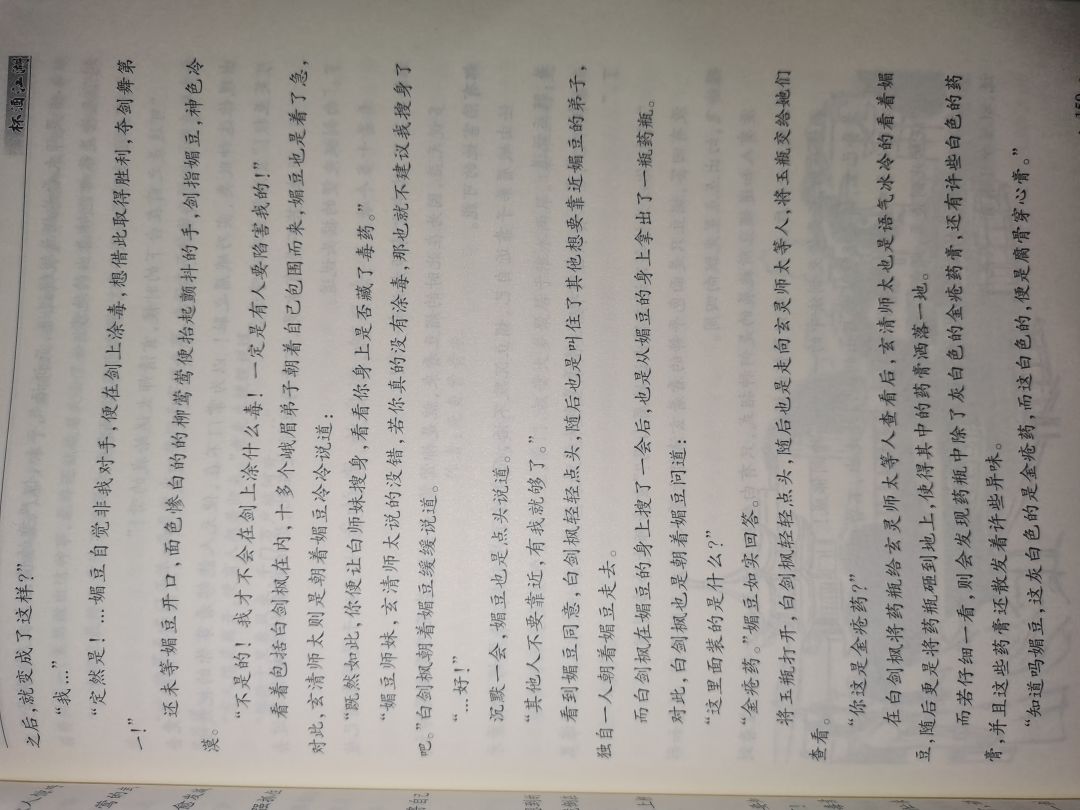 杯酒江湖
之后,就变成了这样?”
“我…”
“定然是!…媚豆自觉非我对手,便在剑上涂毒,想借此取得胜利,夺剑舞第
一!”
还未等媚豆开口,面色惨白的的柳莺莺便抬起颤抖的手,剑指媚豆,神色冷
漠。
“不是的!我才不会在剑上涂什么毒!一定是有人要陷害我的!”
看着包括白剑枫在内,十多个峨眉弟子朝着自己包围而来,媚豆也是着了急,
对此,玄清师太则是朝着媚豆冷冷说道:
“既然如此,你便让白师妹搜身,看看你身上是否藏了毒药。”
“媚豆师妹,玄清师太说的没错,若你真的没有涂毒,那也就不建议我搜身了
吧。”白剑枫朝着媚豆缓缓说道。
“…好!”
沉默一会,媚豆也是点头说道。
“其他人不要靠近,有我就够了。”
看到媚豆同意,白剑枫轻轻点头,随后也是叫住了其他想要靠近媚豆的弟子,
独自一人朝着媚豆走去。
而白剑枫在媚豆的身上搜了一会后,也是从媚豆的身上拿出了一瓶药瓶。
对此,白剑枫也是朝着媚豆问道:
“这里面装的是什么?”
“金疮药。”媚豆如实回答。
将玉瓶打开,白剑枫轻轻点头,随后也是走向玄灵师太等人,将玉瓶交给她们
查看。
“你这是金疮药?”
在白剑枫将药瓶给玄灵师太等人查看后,玄清师太也是语气冰冷的看着媚
豆,随后更是将药瓶砸到地上,使得其中的药膏洒落一地。
而若仔细一看,则会发现药瓶中除了灰白色的金疮药膏,还有许些白色的药
膏,并且这些药膏还散发着许些异味。
“知道吗媚豆,这灰白色的是金疮药,而这白色的,便是腐骨穿心膏。”